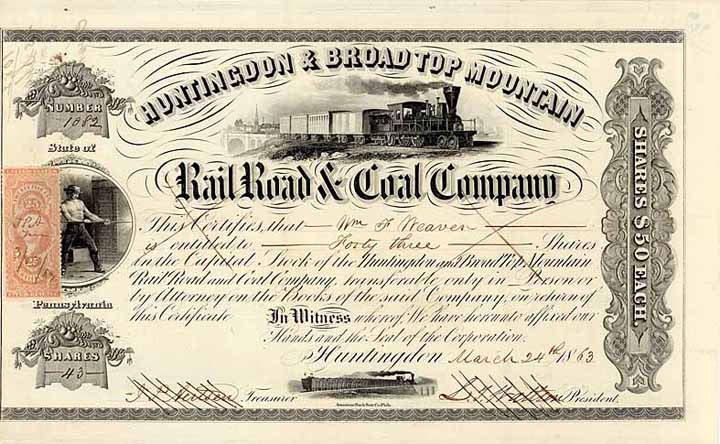 HUNTINGDON & BROAD TOP MOUNTAIN
NUMBER
1082
State of
Rail Road & Coal Company
This Certifies, that Wm F Weaver
is entitled to Forty three Shares
in the Capital Stock of the Huntingdon and Broad Top Mountain
Rail Road and Coal Company, transferable only in Person or
by Attorney on the Books of the said Company, on return of
this Certificate
In Witness whereof, We have hereunto affixed our
Hands and the Seal of the Corporation.
Huntingdon March 24th 1863
Pennsylvania
SHARES
43
Treasurer
President.
SHARES $50 EACH.
25
25